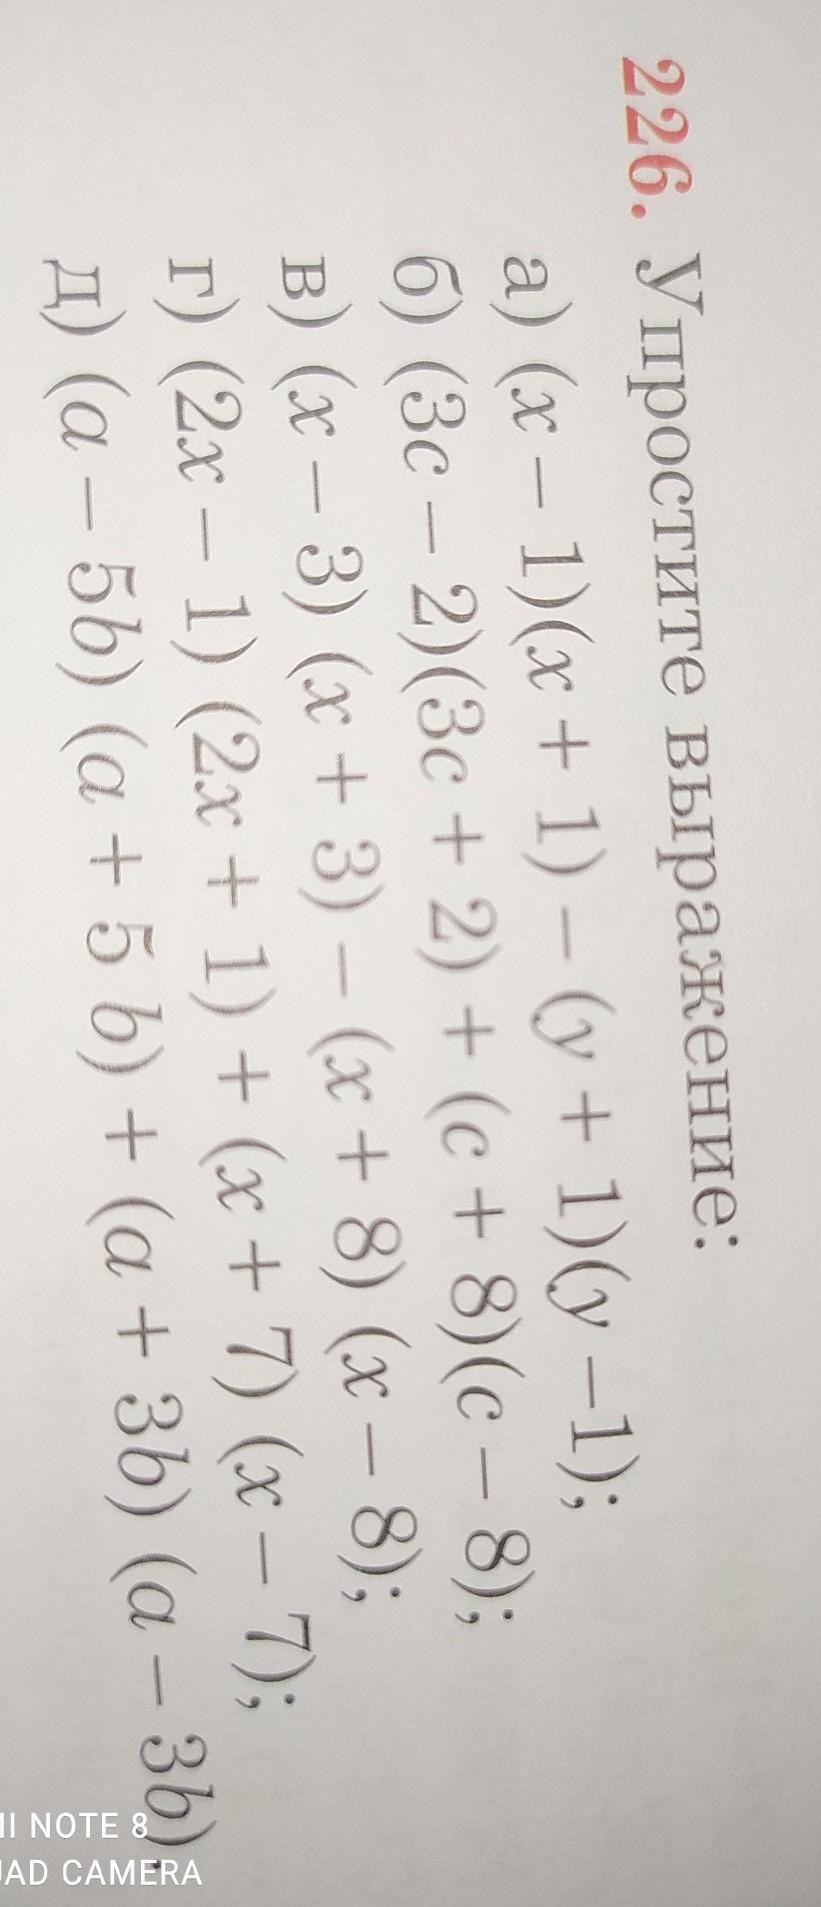 226. Упростите выражение:
а) (x − 1)(x + 1) − (y + 1)(y −1);
б) (3c − 2)(3c + 2) + (c + 8)(c − 8);
в) (x − 3) (x + 3) − (x + 8) (x − 8);
г) (2x − 1) (2x + 1) + (x + 7) (x − 7);
д) (a − 5b) (a + 5 b) + (a + 3b) (a − 3b).
NOTE 8
CAMERA